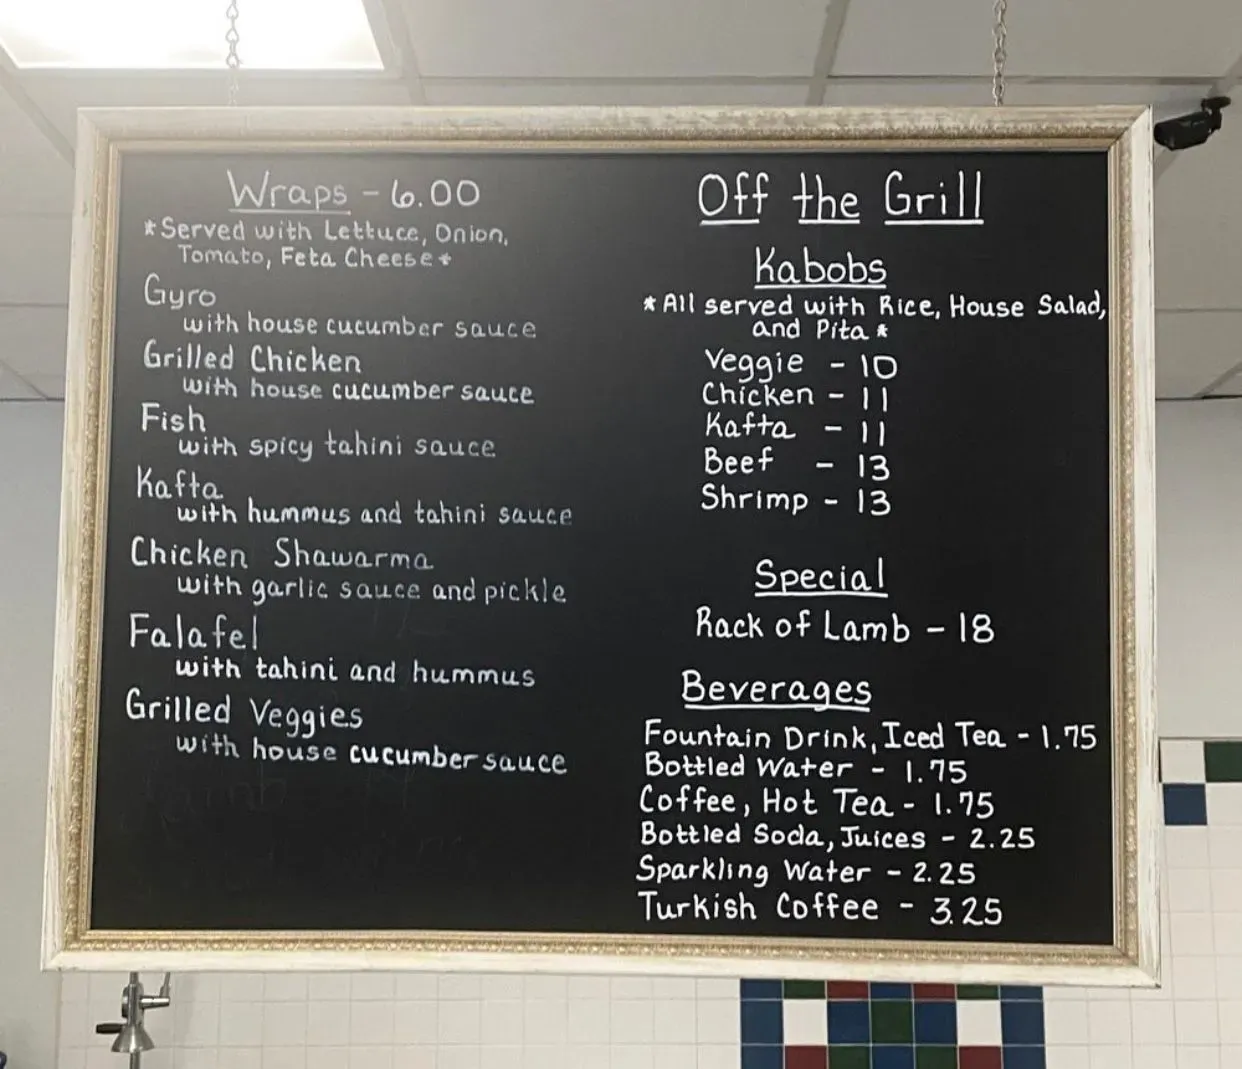 Wraps - 6.00
*Served with Lettuce, Onion,
Tomato, Feta Cheese*
Gyro
with house cucumber sauce
Grilled Chicken
with house cucumber sauce
Fish
with spicy tahini sauce
Kafta
with hummus and tahini sauce
Chicken Shawarma
with garlic sauce and pickle
Falafel
with tahini and hummus
Grilled Veggies
with house cucumber sauce
Off the Grill
Kabobs
*All served with Rice, House Salad,
and Pita*
Veggie - 10
Chicken - 11
Kafta - 11
Beef - 13
Shrimp - 13
Special
Rack of Lamb - 18
Beverages
Fountain Drink, Iced Tea - 1.75
Bottled Water - 1.75
Coffee, Hot Tea - 1.75
Bottled Soda, Juices - 2.25
Sparkling Water - 2.25
Turkish Coffee - 3.25